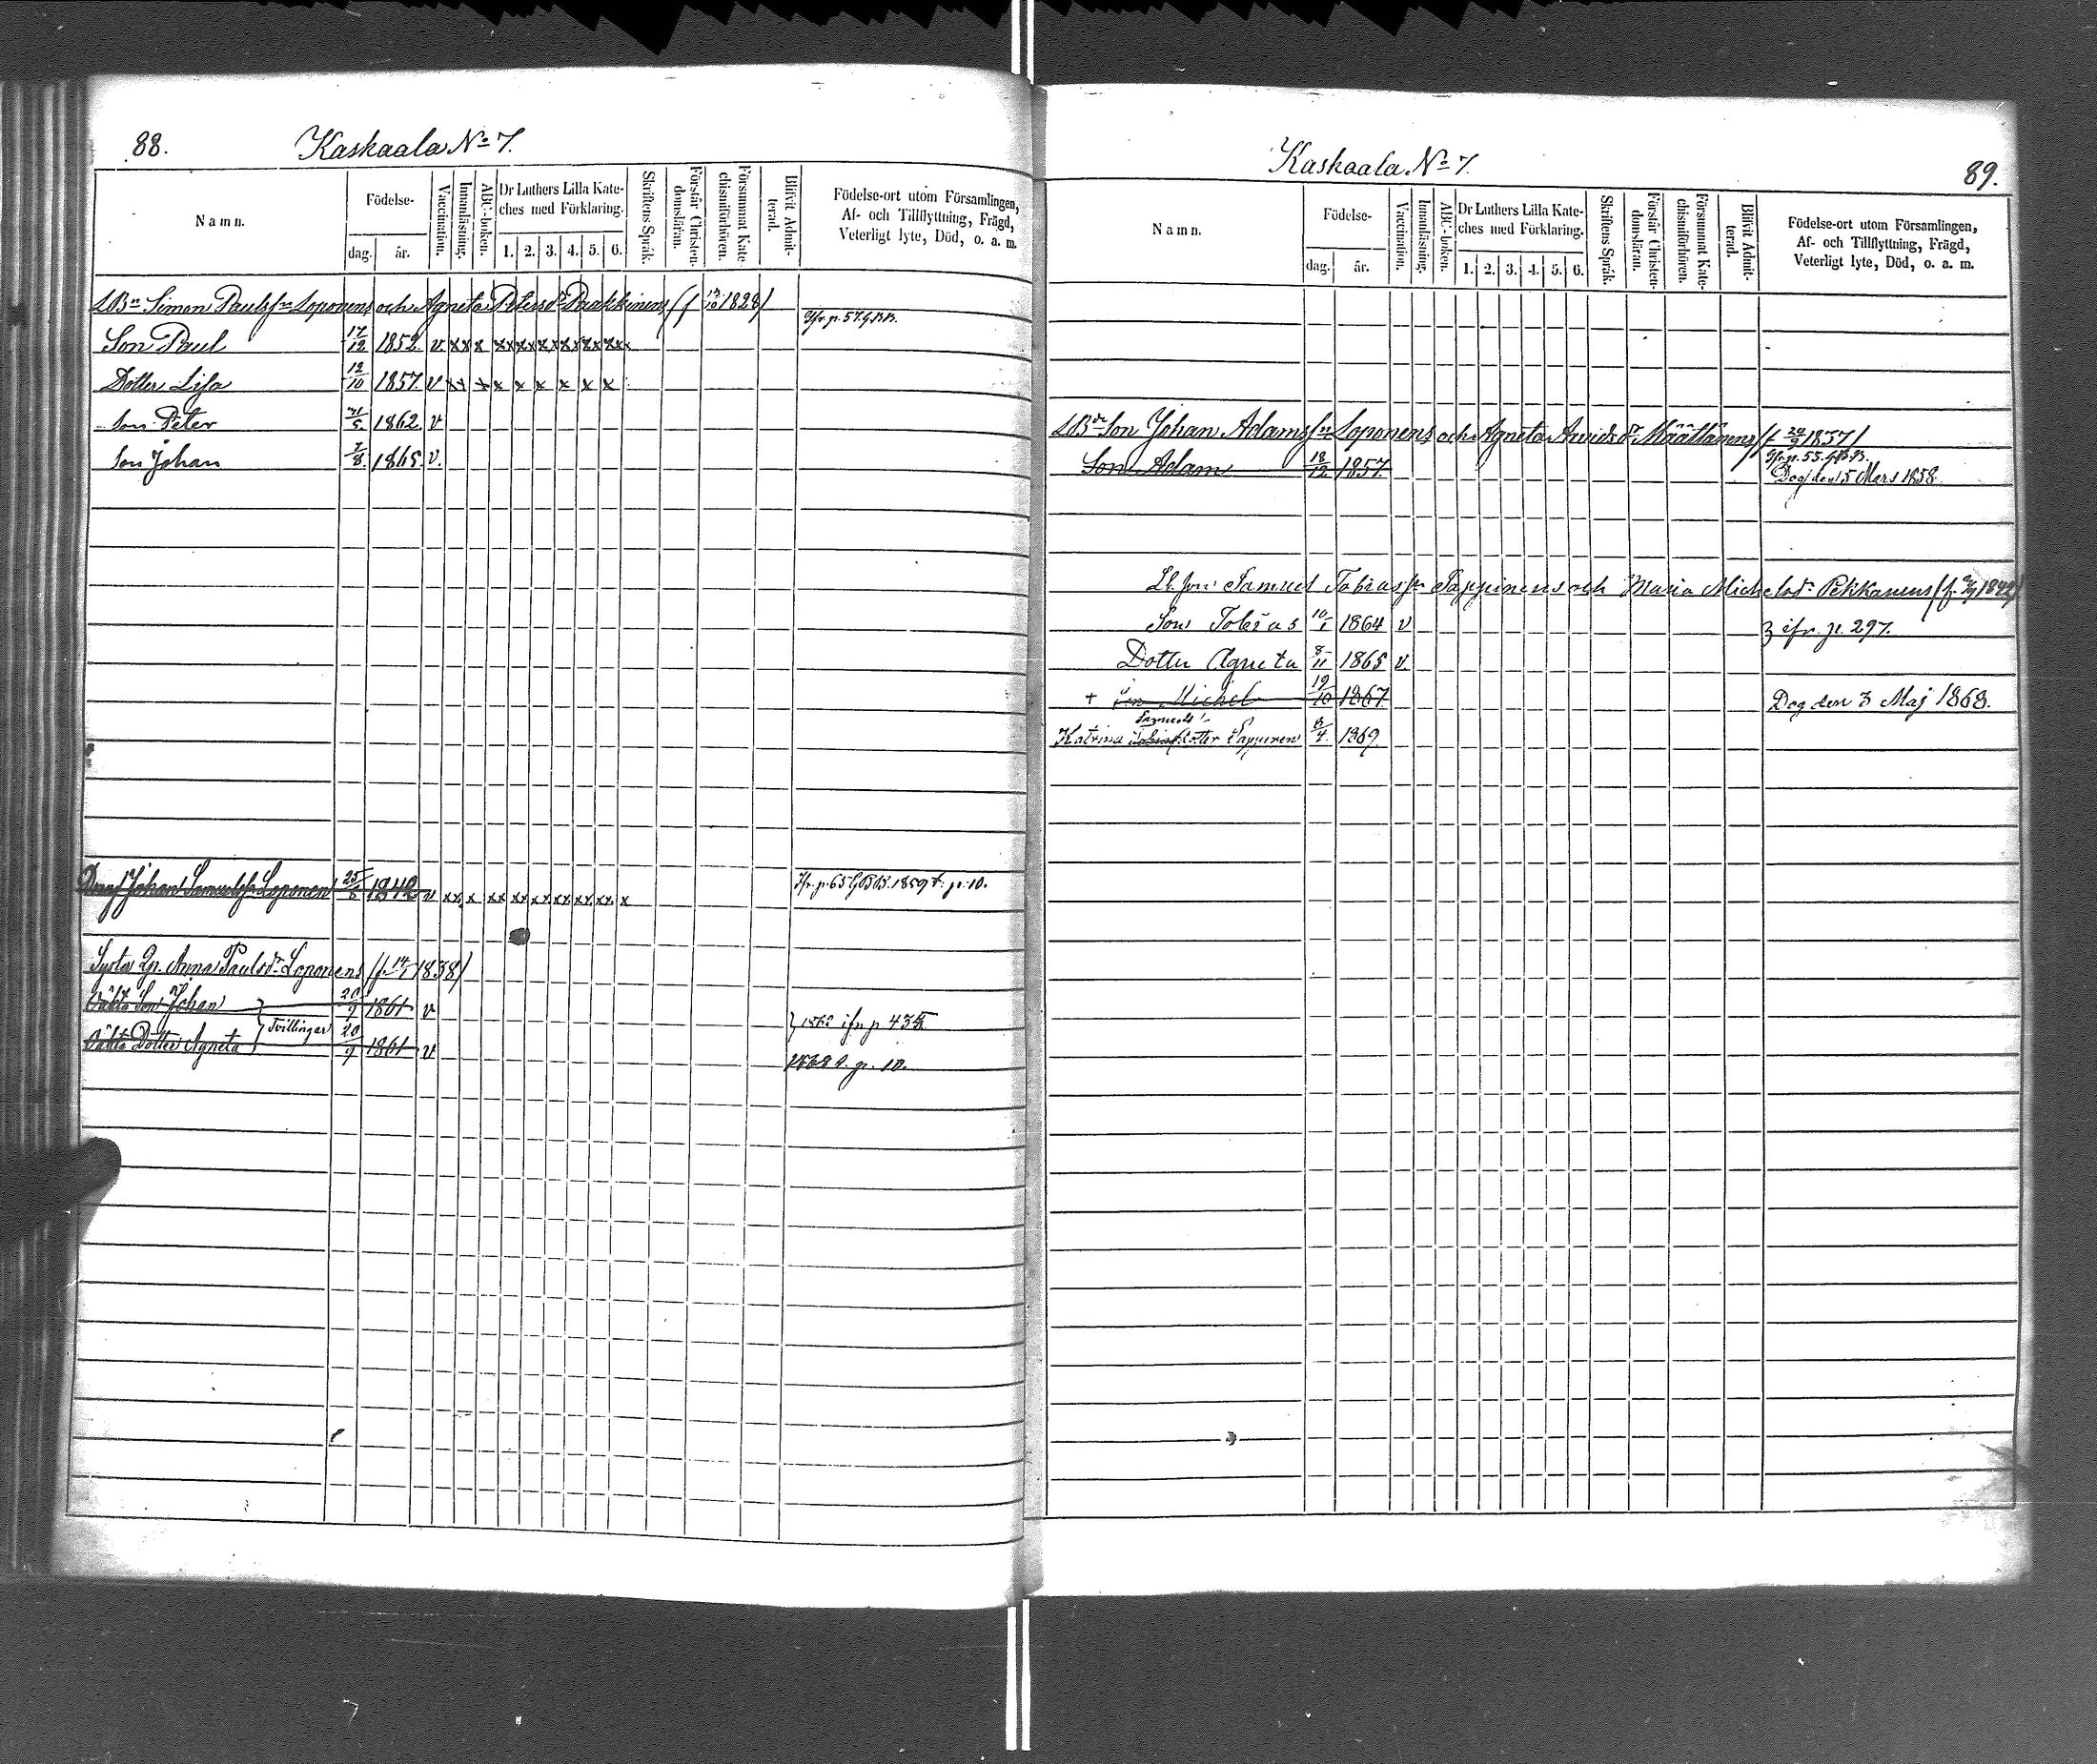 88.
Kaskaala No 7.
Namn.
Födelse-
dag.
år.
Vaccination.
Innanläsning.
ABC-boken.
Dr Luthers Lilla Kate-
ches med Förklaring.
1. 2. 3. 4. 5. 6.
Skriftens Språk.
Förstår Christen-
domsläran.
Försummat Kate-
chismiförhören.
Blifvit Admit-
terad.
Födelse-ort utom Församlingen,
Af- och Tillflyttning, Frägd,
Veterligt lyte, Död, o. a. m.
LBn Simon Paulssn Loponens och Agneta Petersdr Paakkinens (f 13/10 1828)
Jfr p. 57 GBB.
Son Paul 17/12 1852 v xx x xx xx xx xx xx xx
Dotter Lisa 12/10 1857 v xx x x x x x x x
Son Peter 21/5 1862 v
Son Johan 7/8 1865 v.
Johan Samuelssn Loponen 25/5 1842 v xx x xx xx xx xx xx xx x
Jfr p. 65 GBB. 1859 t. p. 10.
Syster Anna Paulsdr Loponens (f. 14/1 1838)
Oäkta Son Johan 20/9 1861 v
Tvillingar
Oäkta Dotter Agneta 20/9 1861 v
1862 ifr p 435
1868 p. 10.
Kaskaala No 7.
89.
Namn.
Födelse-
dag.
år.
Vaccination.
Innanläsning.
ABC-boken.
Dr Luthers Lilla Kate-
ches med Förklaring.
1. 2. 3. 4. 5. 6.
Skriftens Språk.
Förstår Christen-
domsläran.
Försummat Kate-
chismiförhören.
Blifvit Admit-
terad.
Födelse-ort utom Församlingen,
Af- och Tillflyttning, Frägd,
Veterligt lyte, Död, o. a. m.
LBdr Son Johan Adamssn Loponens och Agneta Arvidsdr Määttänens (f 24/9 1837)
Jfr p. 55 GBB.
Son Adam 18/12 1857
Dog den 5 Mars 1858.
Samuel Tobiassn Tappinens och Maria Michelsdr Pekkanens
Son Tobias 10/1 1864 v
ifr p. 297.
Dotter Agneta 8/11 1865 v
+ Son Michel 19/10 1867
Dog den 3 Maj 1868.
Samuels
Katrina Tobias dotter Tappinen 6/4 1869